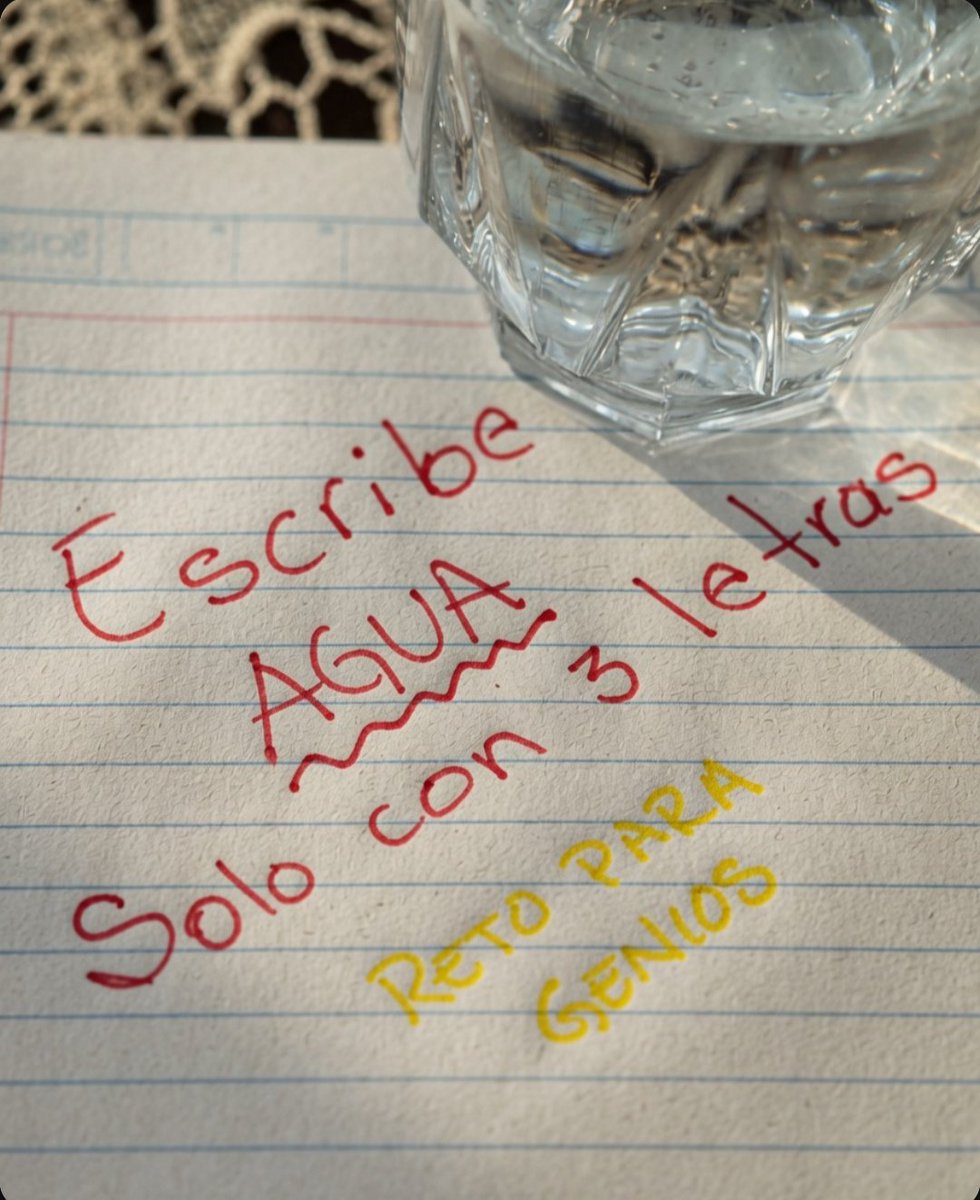 Escribe
AGUA
Solo con 3 letras
RETO PARA
GENIOS